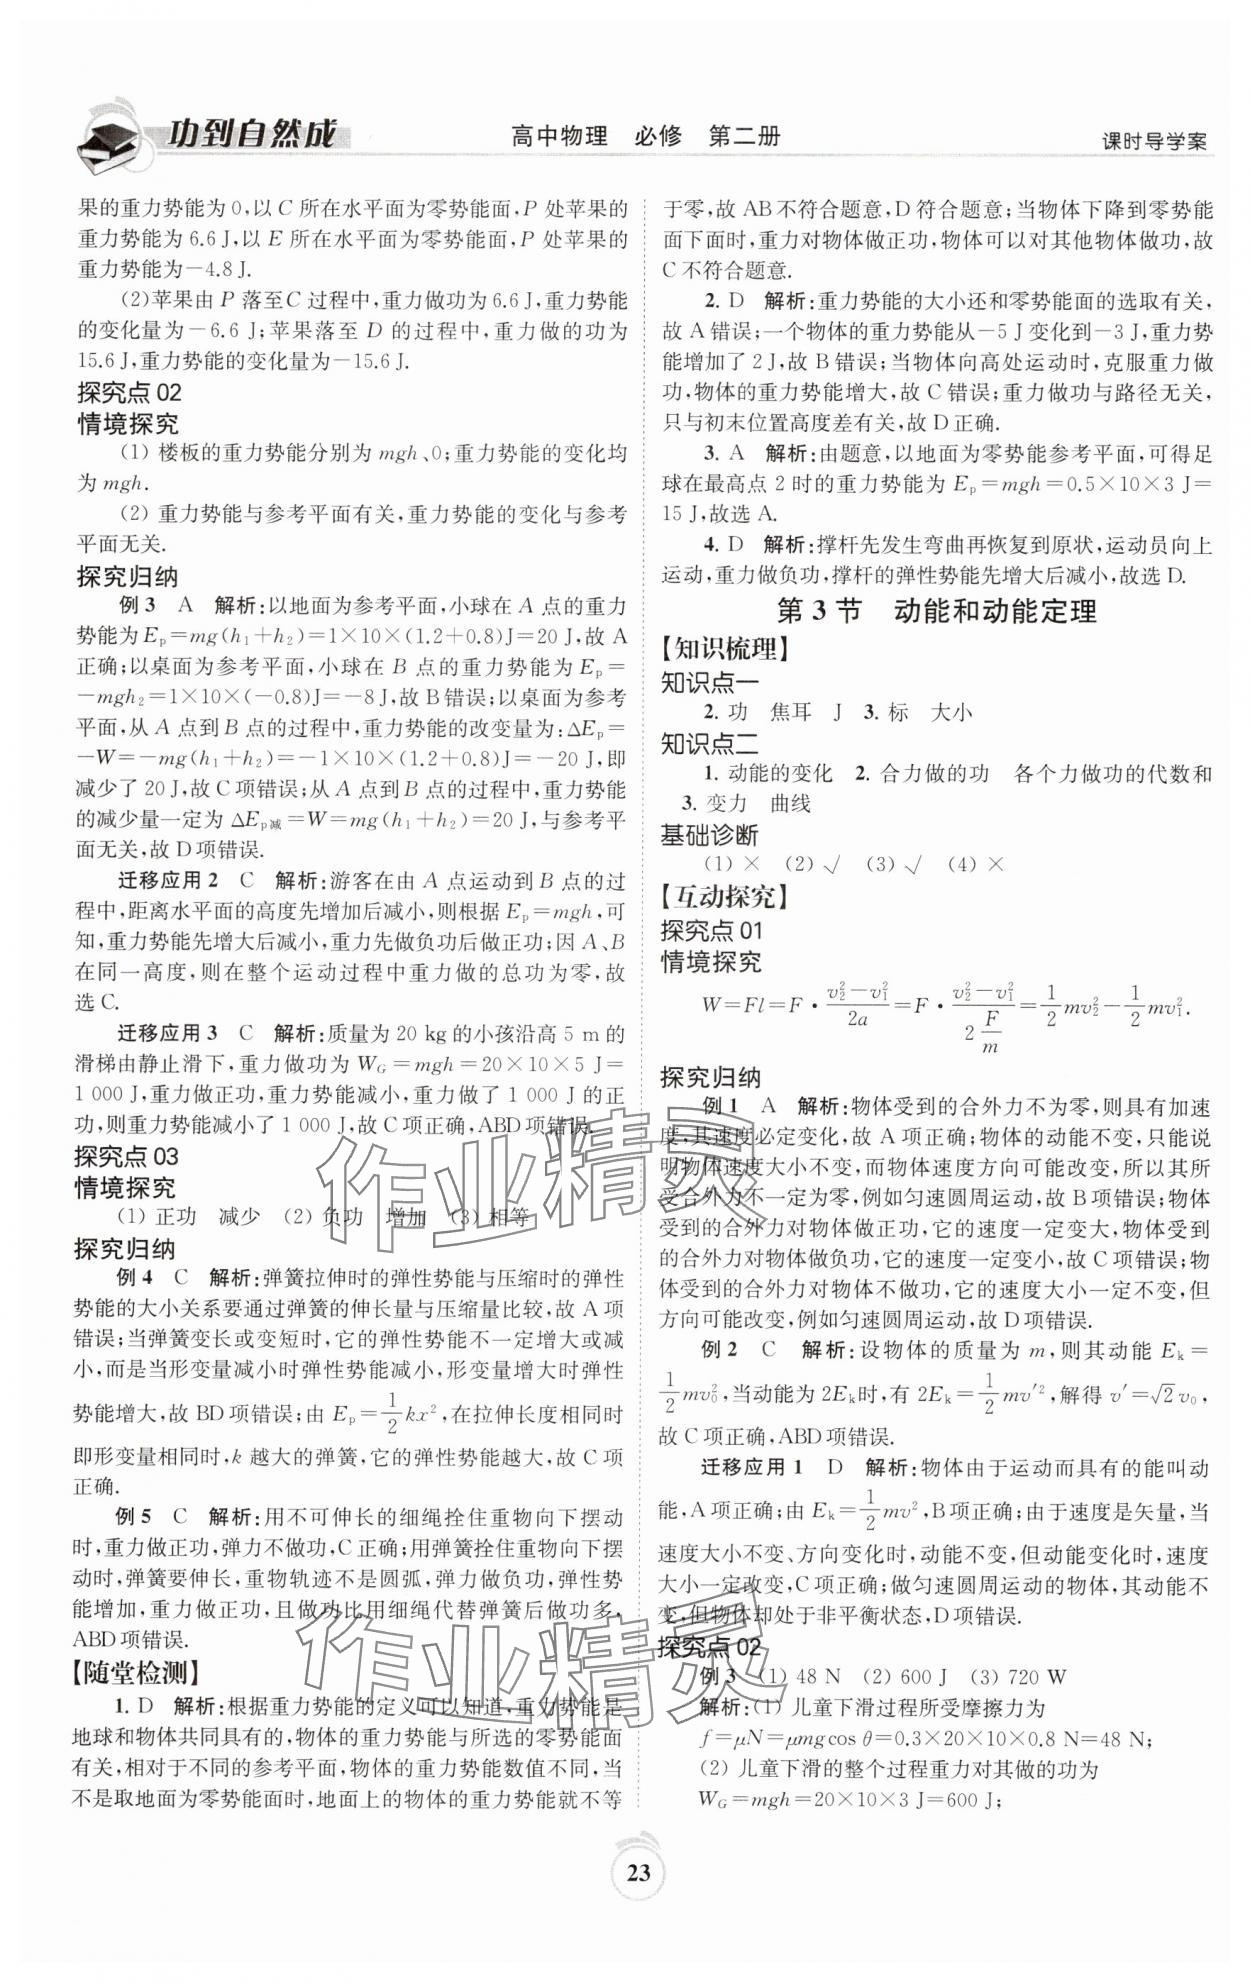 功到自然成
高中物理 必修 第二册
课时导学案
果的重力势能为0,以C所在水平面为零势能面,P处苹果的
重力势能为6.6 J,以E所在水平面为零势能面,P处苹果的
重力势能为-4.8 J.
(2)苹果由P落至C过程中,重力做功为6.6 J,重力势能
的变化量为-6.6 J;苹果落至D的过程中,重力做的功为
15.6 J,重力势能的变化量为-15.6 J.
探究点02
情境探究
(1) 楼板的重力势能分别为mgh、0;重力势能的变化均
为mgh.
(2) 重力势能与参考平面有关,重力势能的变化与参考
平面无关.
探究归纳
例3 A 解析:以地面为参考平面,小球在A点的重力
势能为Eₚ=mg(h₁+h₂)=1×10×(1.2+0.8)J=20 J,故A
正确;以桌面为参考平面,小球在B点的重力势能Eₚ=
-mgh₂=1×10×(-0.8)J=-8 J,故B错误;以桌面为参考
平面,从A点到B点的过程中,重力势能的改变量为:ΔEₚ=
-W=-mg(h₁+h₂)=-1×10×(1.2+0.8)J=-20 J,即
减少了20 J,故C项错误;从A点到B点的过程中,重力势能
的减少量一定为ΔEp减=W=mg(h₁+h₂)=20 J,与参考平
面无关,故D项错误.
迁移应用2 C 解析:游客在由A点运动到B点的过
程中,距离水平面的高度先增加后减小,则根据Eₚ=mgh,可
知,重力势能先增大后减小,重力先做负功后做正功;因A、B
在同一高度,则在整个运动过程中重力做的总功为零,故
选C.
迁移应用3 C 解析:质量为20 kg的小孩沿高5 m的
滑梯由静止滑下,重力做功为W_G=mgh=20×10×5 J=
1 000 J,重力做正功,重力势能减小,重力做了1 000 J的正
功,则重力势能减小了1 000 J,故C项正确,ABD项错误.
探究点03
情境探究
(1) 正功 减少 (2) 负功 增加 (3) 相等
探究归纳
例4 C 解析:弹簧拉伸时的弹性势能与压缩时的弹性
势能的大小关系要通过弹簧的伸长量与压缩量比较,故A项
错误;当弹簧变长或变短时,它的弹性势能不一定增大或减
小,而是当形变量减小时弹性势能减小,形变量增大时弹性
势能增大,故BD项错误;由Eₚ=1/2kx²,在拉伸长度相同时
即形变量相同时,k越大的弹簧,它的弹性势能越大,故C项
正确.
例5 C 解析:用不可伸长的细绳拴住重物向下摆动
时,重力做正功,弹力不做功,C正确;用弹簧拴住重物向下摆
动时,弹簧要伸长,重物轨迹不是圆弧,弹力做负功,弹性势
能增加,重力做正功,且做功比用细绳代替弹簧后做功多,
ABD项错误.
【随堂检测】
1. D 解析:根据重力势能的定义可以知道,重力势能是
地球和物体共同具有的,物体的重力势能与所选的零势能面
有关,相对于不同的参考平面,物体的重力势能数值不同,当
不是取地面为零势能面时,地面上的物体的重力势能就不等
于零,故AB不符合题意,D符合题意;当物体下降到零势能
面下面时,重力对物体做正功,物体可以对其他物体做功,故
C不符合题意.
2. D 解析:重力势能的大小还和零势能面的选取有关,
故A错误;一个物体的重力势能从-5 J变化到-3 J,重力势
能增加了2 J,故B错误;当物体向高处运动时,克服重力做
功,物体的重力势能增大,故C错误;重力做功与路径无关,
只与初末位置高度差有关,故D正确.
3. A 解析:由题意,以地面为零势能参考平面,可得足
球在最高点2时的重力势能为Eₚ=mgh=0.5×10×3 J=
15 J,故选A.
4. D 解析:撑杆先发生弯曲再恢复到原状,运动员向上
运动,重力做负功,撑杆的弹性势能先增大后减小,故选D.
第3节 动能和动能定理
【知识梳理】
知识点一
2. 功 焦耳 J 3. 标 大小
知识点二
1. 动能的变化 2. 合力做的功 各个力做功的代数和
3. 变力 曲线
基础诊断
(1) × (2) √ (3) √ (4) ×
【互动探究】
探究点01
情境探究
W=Fl=F·(v₂²-v₁²)/(2a)=F·(v₂²-v₁²)/(2F/m)=1/2mv₂²-1/2mv₁².
探究归纳
例1 A 解析:物体受到的合外力不为零,则具有加速
度,其速度必定变化,故A项正确;物体的动能不变,只能说
明物体速度大小不变,而物体速度方向可能改变,所以其所
受合外力不一定为零,例如匀速圆周运动,故B项错误;物体
受到的合外力对物体做正功,它的速度一定变大,物体受到
的合外力对物体做负功,它的速度一定变小,故C项错误;
物体受到的合外力对物体不做功,它的速度大小一定不变,但
方向可能改变,例如匀速圆周运动,故D项错误.
例2 C 解析:设物体的质量为m,则其动能Eₖ=
1/2mv₀²,当动能为2Eₖ时,有2Eₖ=1/2mv′²,解得v′=√2v₀,
故C项正确,ABD项错误.
迁移应用1 D 解析:物体由于运动而具有的能叫动
能,A项正确;由Eₖ=1/2mv²,B项正确;由于速度是矢量,当
速度大小不变、方向变化时,动能不变,但动能变化时,速度
大小一定改变,C项正确;做匀速圆周运动的物体,其动能不
变,但物体却处于非平衡状态,D项错误.
探究点02
例3 (1) 48 N (2) 600 J (3) 720 W
解析:(1) 儿童下滑过程所受摩擦力为
f=μN=μmgcos θ=0.3×20×10×0.8 N=48 N;
(2) 儿童下滑的整个过程重力对其做的功为
W_G=mgh=20×10×3 J=600 J;
作业精灵
作业精灵
23